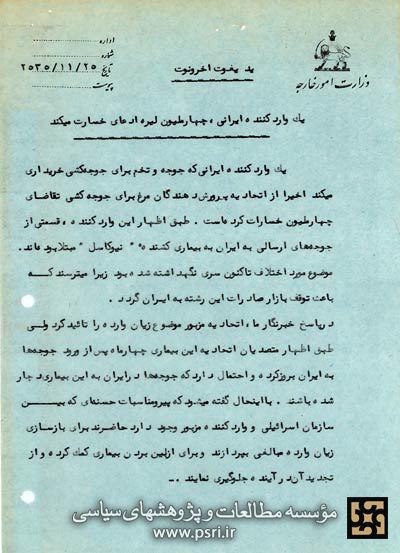 اداره
شماره
تاریخ ۲۵۳۵/۱۱/۲۵
پیوست
وزارت امور خارجه
ید یعوت اخرونوت
یك وارد کننده ایرانی ، چهار طیون لیره ادعای خسارت میکند
یك وارد کننده ایرانی که جوجه و تخم برای جوجه‌کشی خریداری
میکند اخیرا از اتحادیه پرورش دهندگان مرغ برای جوجه کشی تقاضای
چهار طیون خسارات کرده‌است . طبق اظهار این وارد کننده ، قسمتی از
جوجه‌های ارسالی به ایران به بیماری کشنده " نیوکاسل " مبتلا بوده‌اند .
موضوع مورد اختلاف تاکنون سری نگهداشته شده بود زیرا میترسند که
باعث توقف بازار صادرات این رشته به ایران گردد .
در پاسخ خبرنگار ما ، اتحادیه مزبور موضوع زیان وارده را تائید کرد ولی
طبق اظهار متصدیان اتحادیه این بیماری چهار ماه پس از ورود جوجه‌ها
به ایران بروز کرده و احتمال دارد که جوجه‌ها در ایران به این بیماری دچار
شده باشند . با اینحال گفته میشود که پیرو مناسبات حسنه‌ای که بیـــن
سازمان اسرائیلی و وارد کننده مزبور وجود دارد حاضرند برای بازسازی
زیان وارده مبالغی بپردازند و برای ازبین بردن بیماری کمك کرده و از
تجدید آن در آینده جلوگیری نمایند .ـ
مؤسسه مطالعات و پژوهشهای سیاسی
www.psri.ir